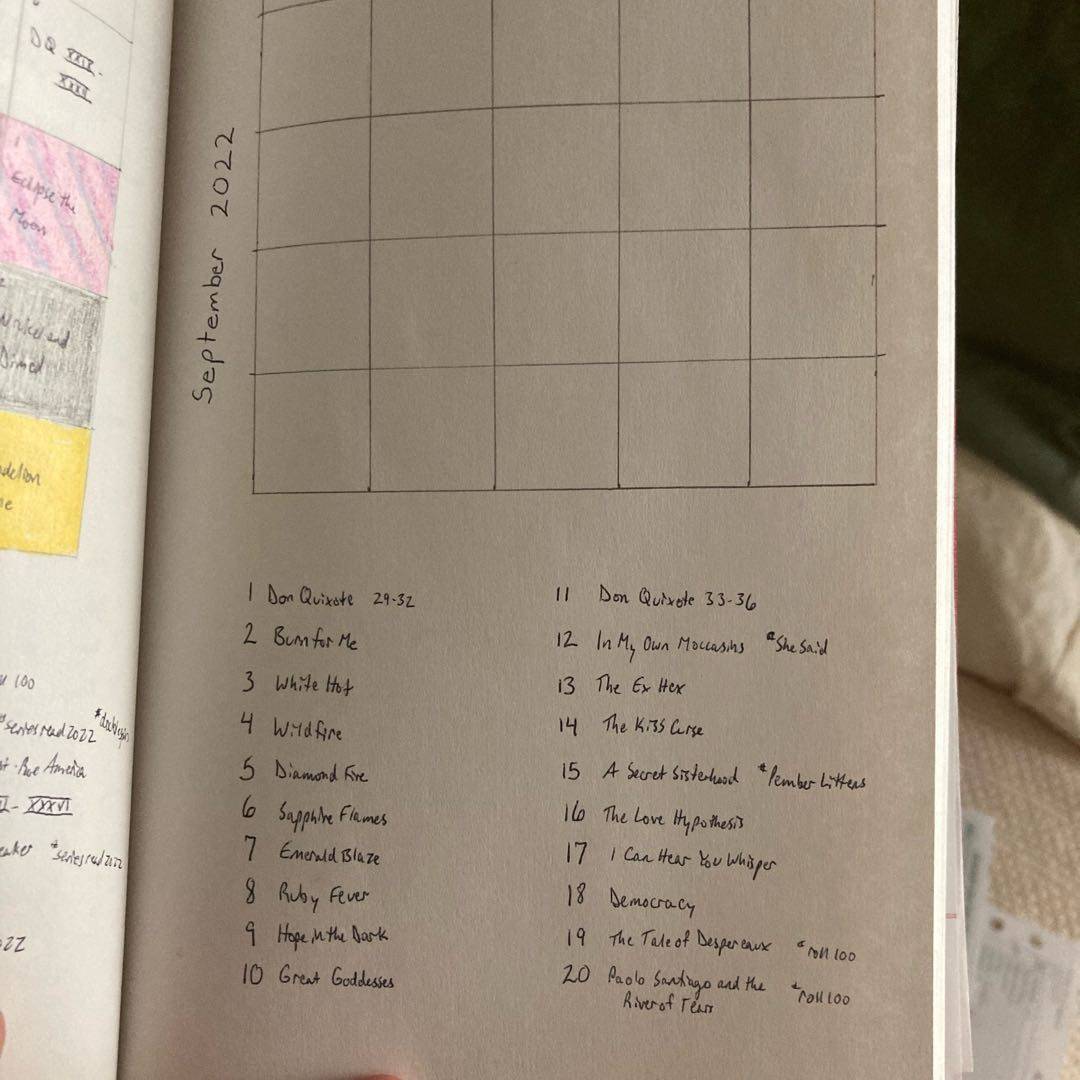 DQ XXIX-
XXXII
Eclipse the
Moon
Nickel and
Dimed
delion
ne
100
*series read 2022
America
- XXXVI
eaker *series read 2022
022
September 2022
1 Don Quixote 29-32
2 Burn for Me
3 White Hot
4 Wildfire
5 Diamond Fire
6 Sapphire Flames
7 Emerald Blaze
8 Ruby Fever
9 Hope in the Dark
10 Great Goddesses
11 Don Quixote 33-36
12 In My Own Moccasins *She Said
13 The Ex Hex
14 The Kiss Curse
15 A Secret Sisterhood *Pember Littens
16 The Love Hypothesis
17 I Can Hear You Whisper
18 Democracy
19 The Tale of Despereaux *roll 100
20 Paolo Santiago and the *roll 100
River of Tears